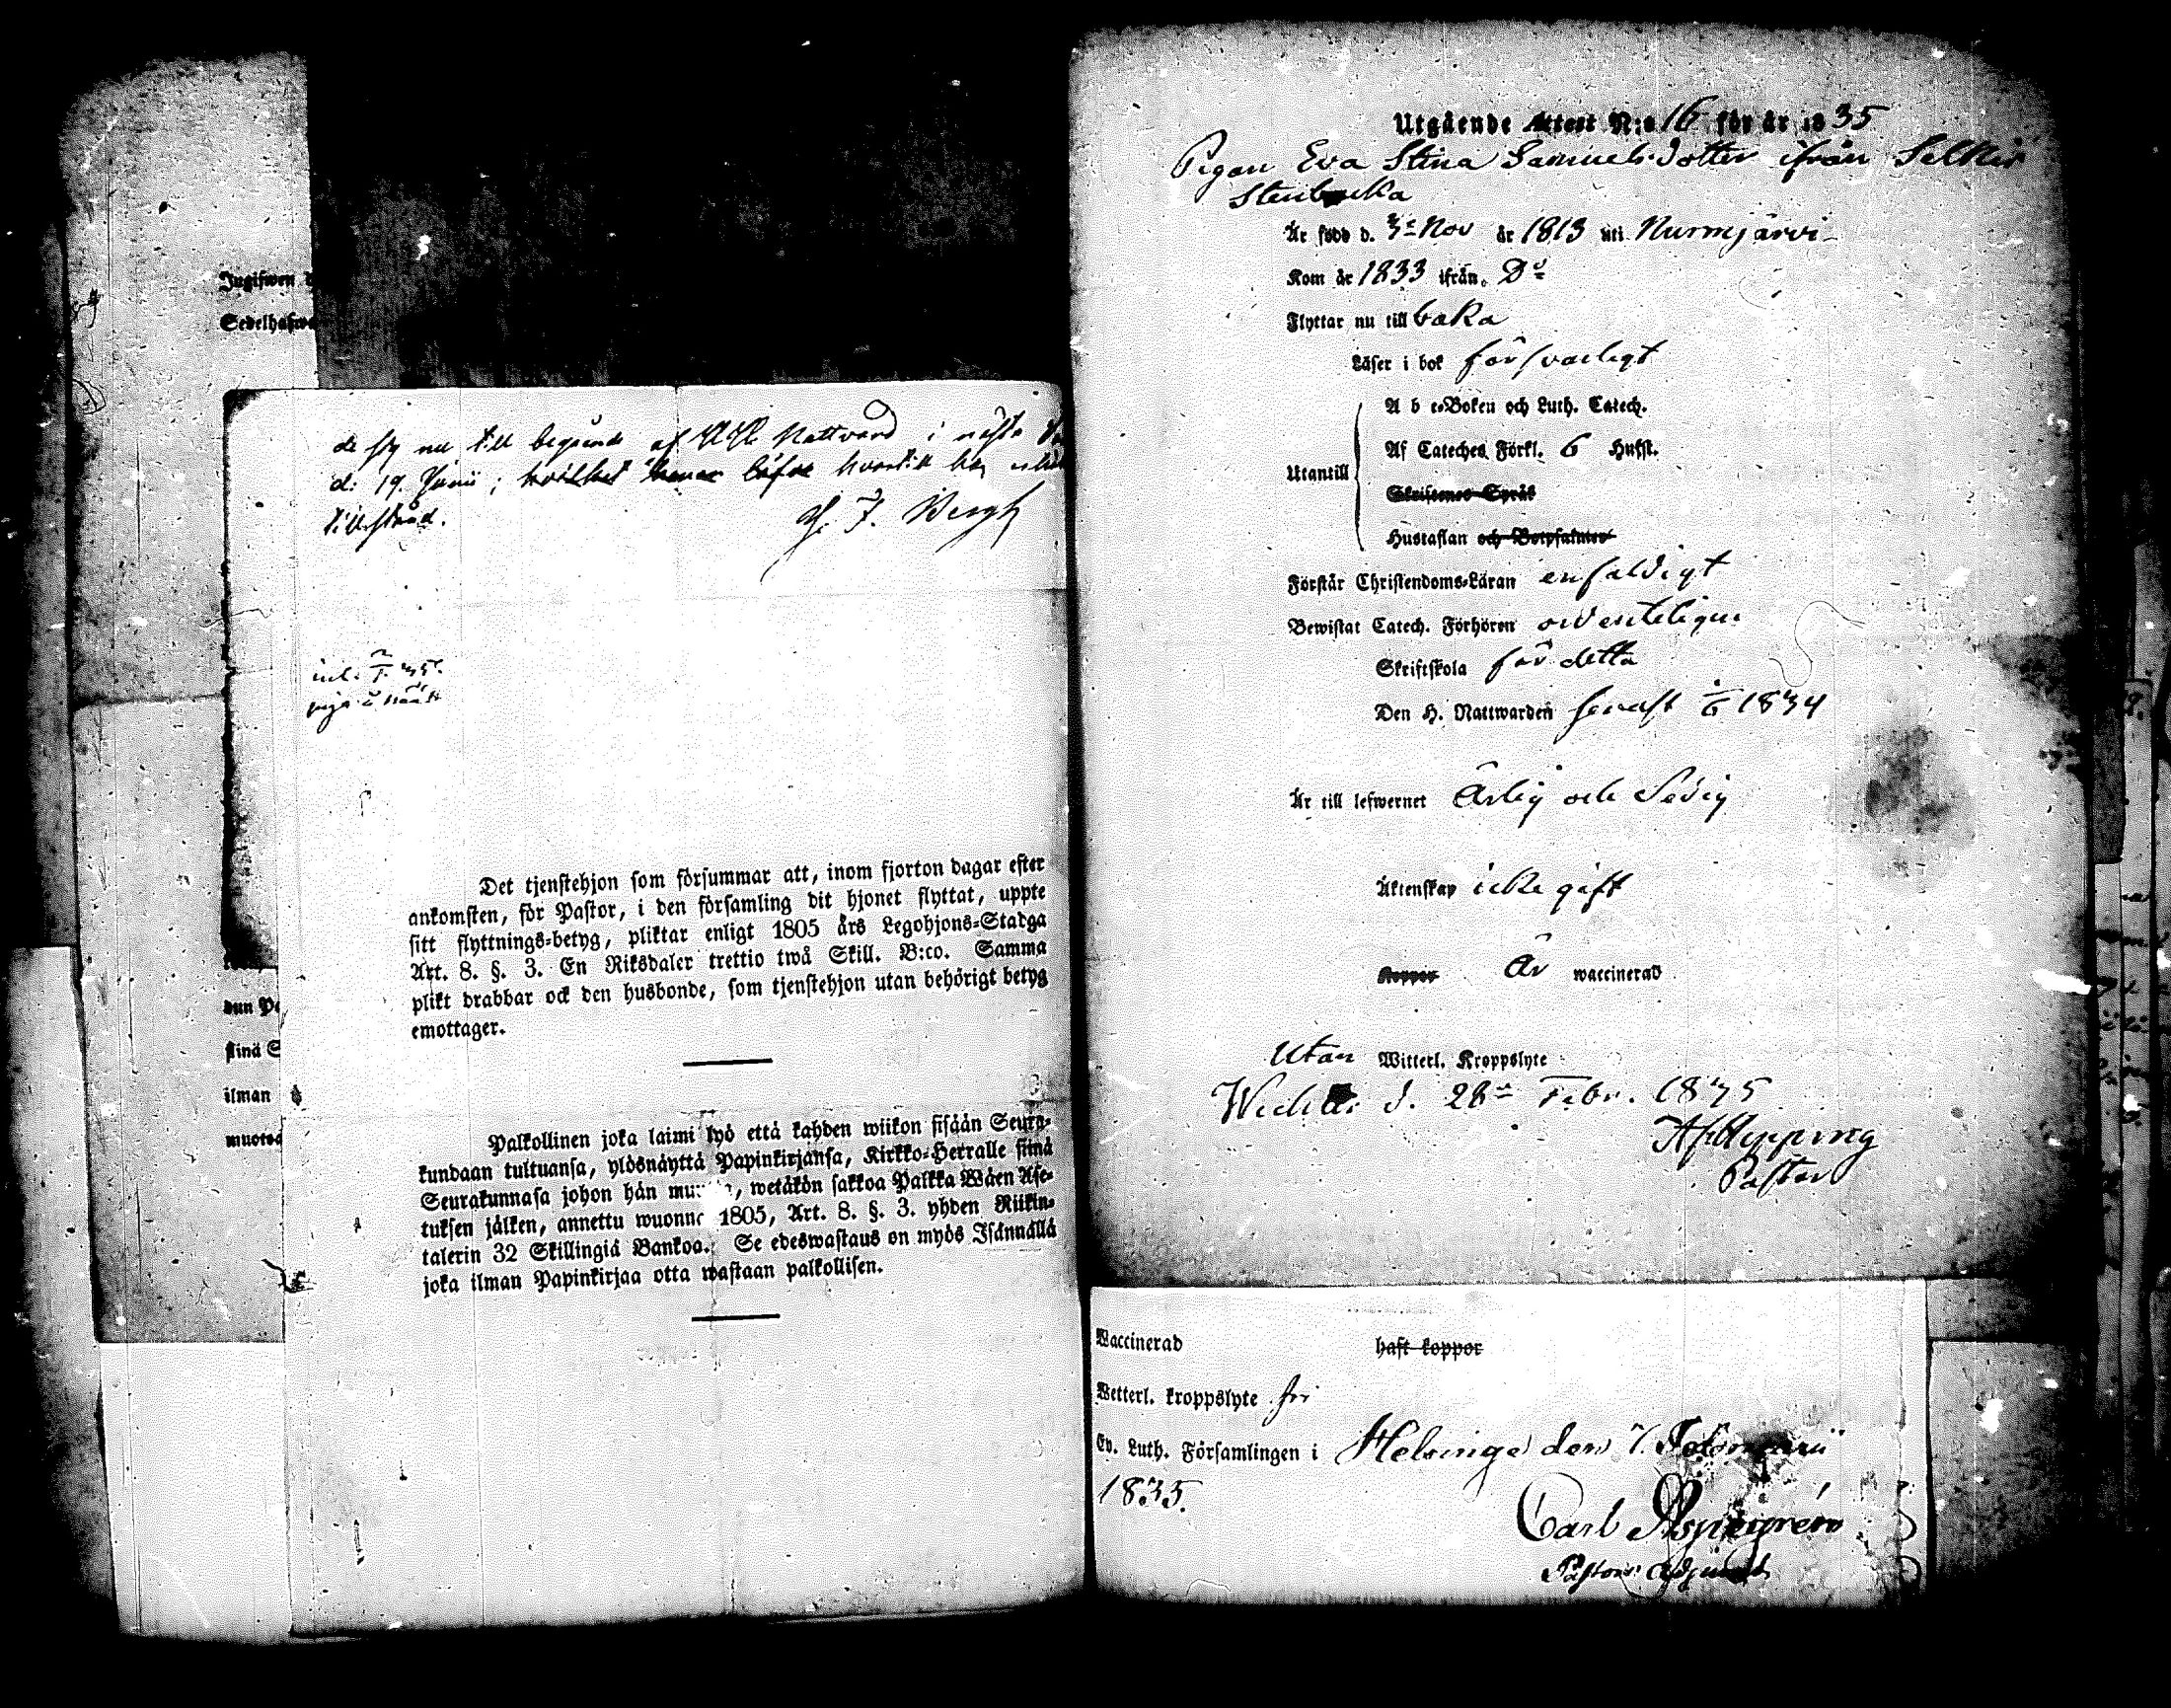 Jngifwen
Sedelhafwa
dun Pa
sinä S
ilman
muotoa
d: 19. Junii ;
tillstånd.
Det tjenstehjon som försummar att, inom fjorton dagar efter
ankomsten, för Pastor, i den församling dit hjonet flyttat, uppte
sitt flyttnings-betyg, pliktar enligt 1805 års Legohjons-Stadga
Art. 8. §. 3. En Riksdaler trettio twå Skill. B:co. Samma
plikt drabbar ock den husbonde, som tjenstehjon utan behörigt betyg
emottager.
Palkollinen joka laimi lyö että kahden wiikon sisään Seura-
kundaan tultuansa, ylösnäyttä Papinkirjansa, Kirkko-Herralle siinä
Seurakunnasa johon hän mu, wetäkön sakkoa Palkka Wäen Ase-
tuksen jälken, annettu wuonna 1805, Art. 8. §. 3. yhden Riikin-
talerin 32 Skillingiä Bankoa. Se edeswastaus on myös Isännällä
joka ilman Papinkirjaa otta wastaan palkollisen.
Utgående Attest N:o 16 för år 1835
Pigan Eva Stina Samuelsdotter ifrån Selkis
Stenbacka
Är född d. 3e Nov år 1813 uti Nurmijärvi
Kom år 1833 ifrån Do
Flyttar nu till baka
Läser i bok försvarligt
A b c-Boken och Luth. Catech.
Af Cateches Förkl. 6 Hufst.
Utantill
Skriftenes Språk
Hustaflan och Botpsalmer
Förstår Christendoms-Läran enfaldigt
Bewistat Catech. Förhören ordenteligen
Skriftskola för detta
Den H. Nattwarden senast 1834
Är till lefwernet Ärlig och Sedig
Äktenskap icke gift
Koppor Är waccinerad
Utan Witterl. Kroppslyte
d. 28de Febr. 1835
Pastor
Waccinerad haft koppor
Wetterl. kroppslyte fri
Ev. Luth. Församlingen i Helsinge den 7. Februarii
1835.
Carl Aspegrén
Pastors Adjunct